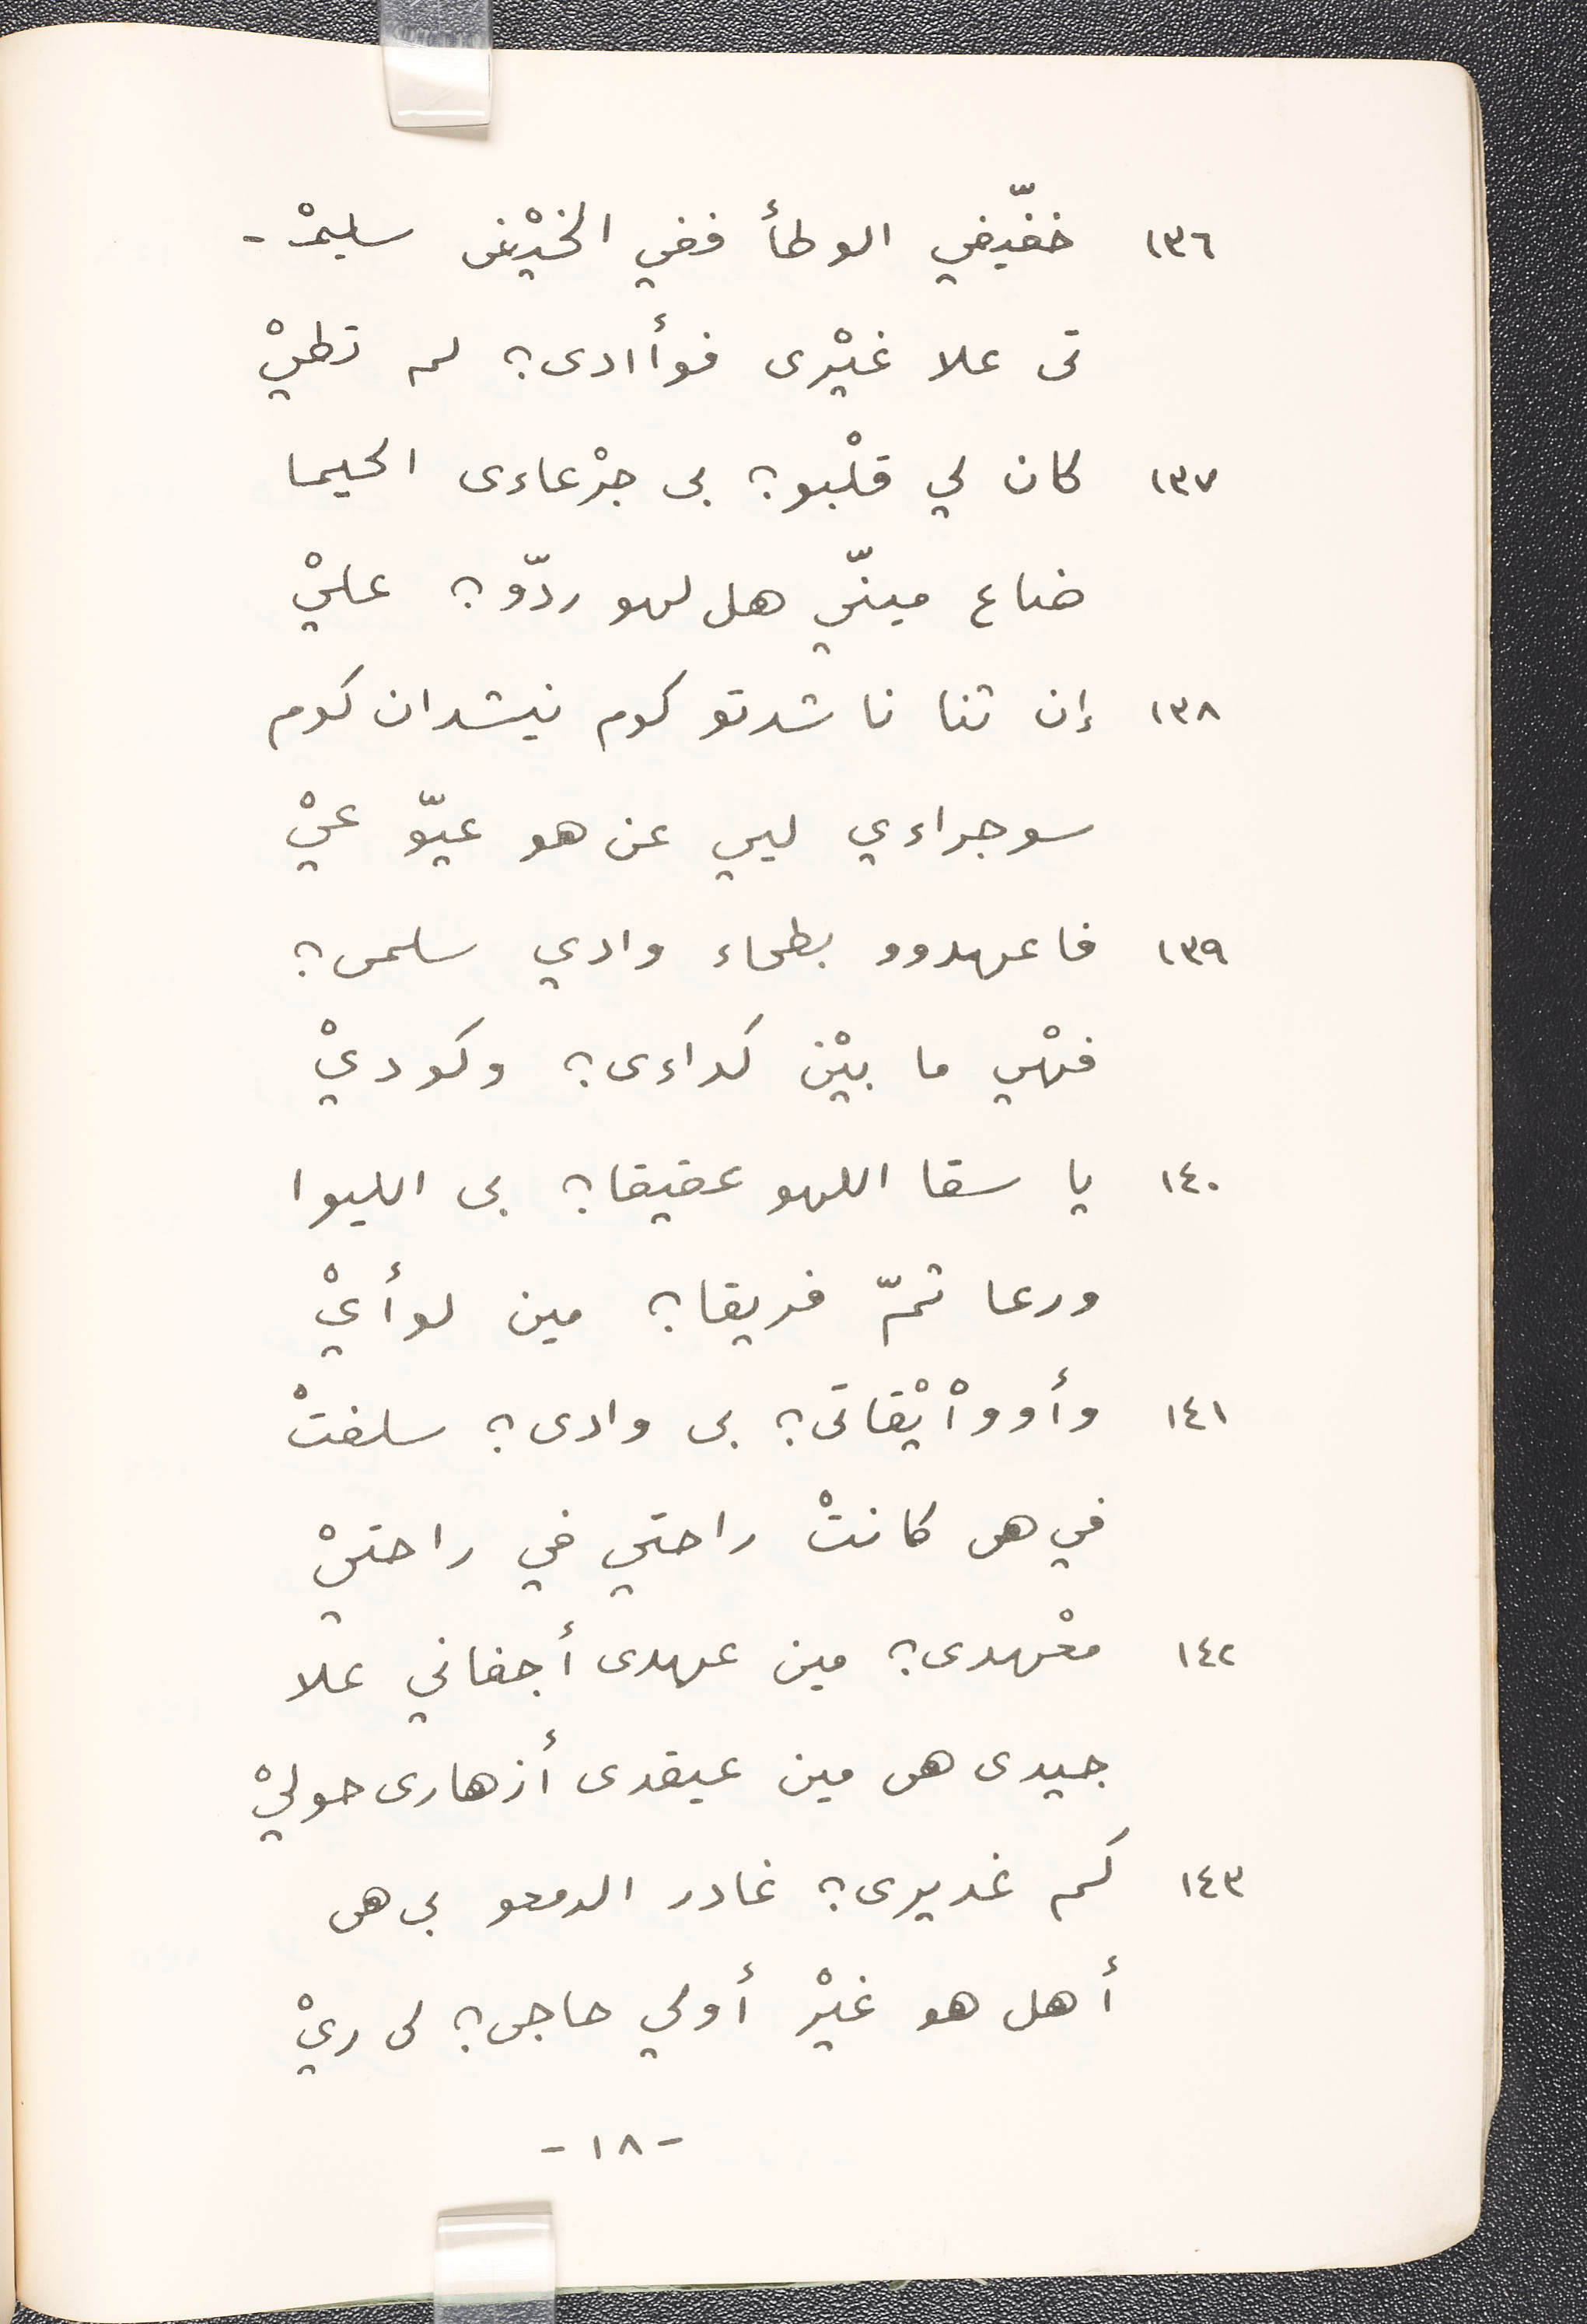 ١٣٦ خفّيفي الوطأ ففي الخيْفى سليمْ -
تى علا غيْرى فوأادى؟ لم تطيْ
١٣٧ كان لي قلْبو؟ بى جرْعاءى الحيما
ضاع مينّي هل لهو ردّو؟ عليْ
١٣٨ إن تنا ناشدتو كوم نيشدان كوم
سوجراءي ليي عن هو عيّو عيْ
١٣٩ فاعهدوو بطحاء وادي سلمى؟
فهْي ما بيْن كداءى؟ وكوديْ
١٤٠ يا سقا اللهو عقيقا؟ بى الليوا
ورعا تمّ فريقا؟ مين لوأيْ
١٤١ وأووأيْقاتى؟ بى وادى؟ سلفتْ
في هى كانتْ راحتي في راحتيْ
١٤٢ معْهدى؟ مين عهدى أجفاني علا
جيدى هى مين عيقدى أزهارى حوليْ
١٤٣ كم غديرى؟ غادر الدمعو بى هى
أهل هو غيْر أولي حاجى؟ لى ريْ
-١٨-